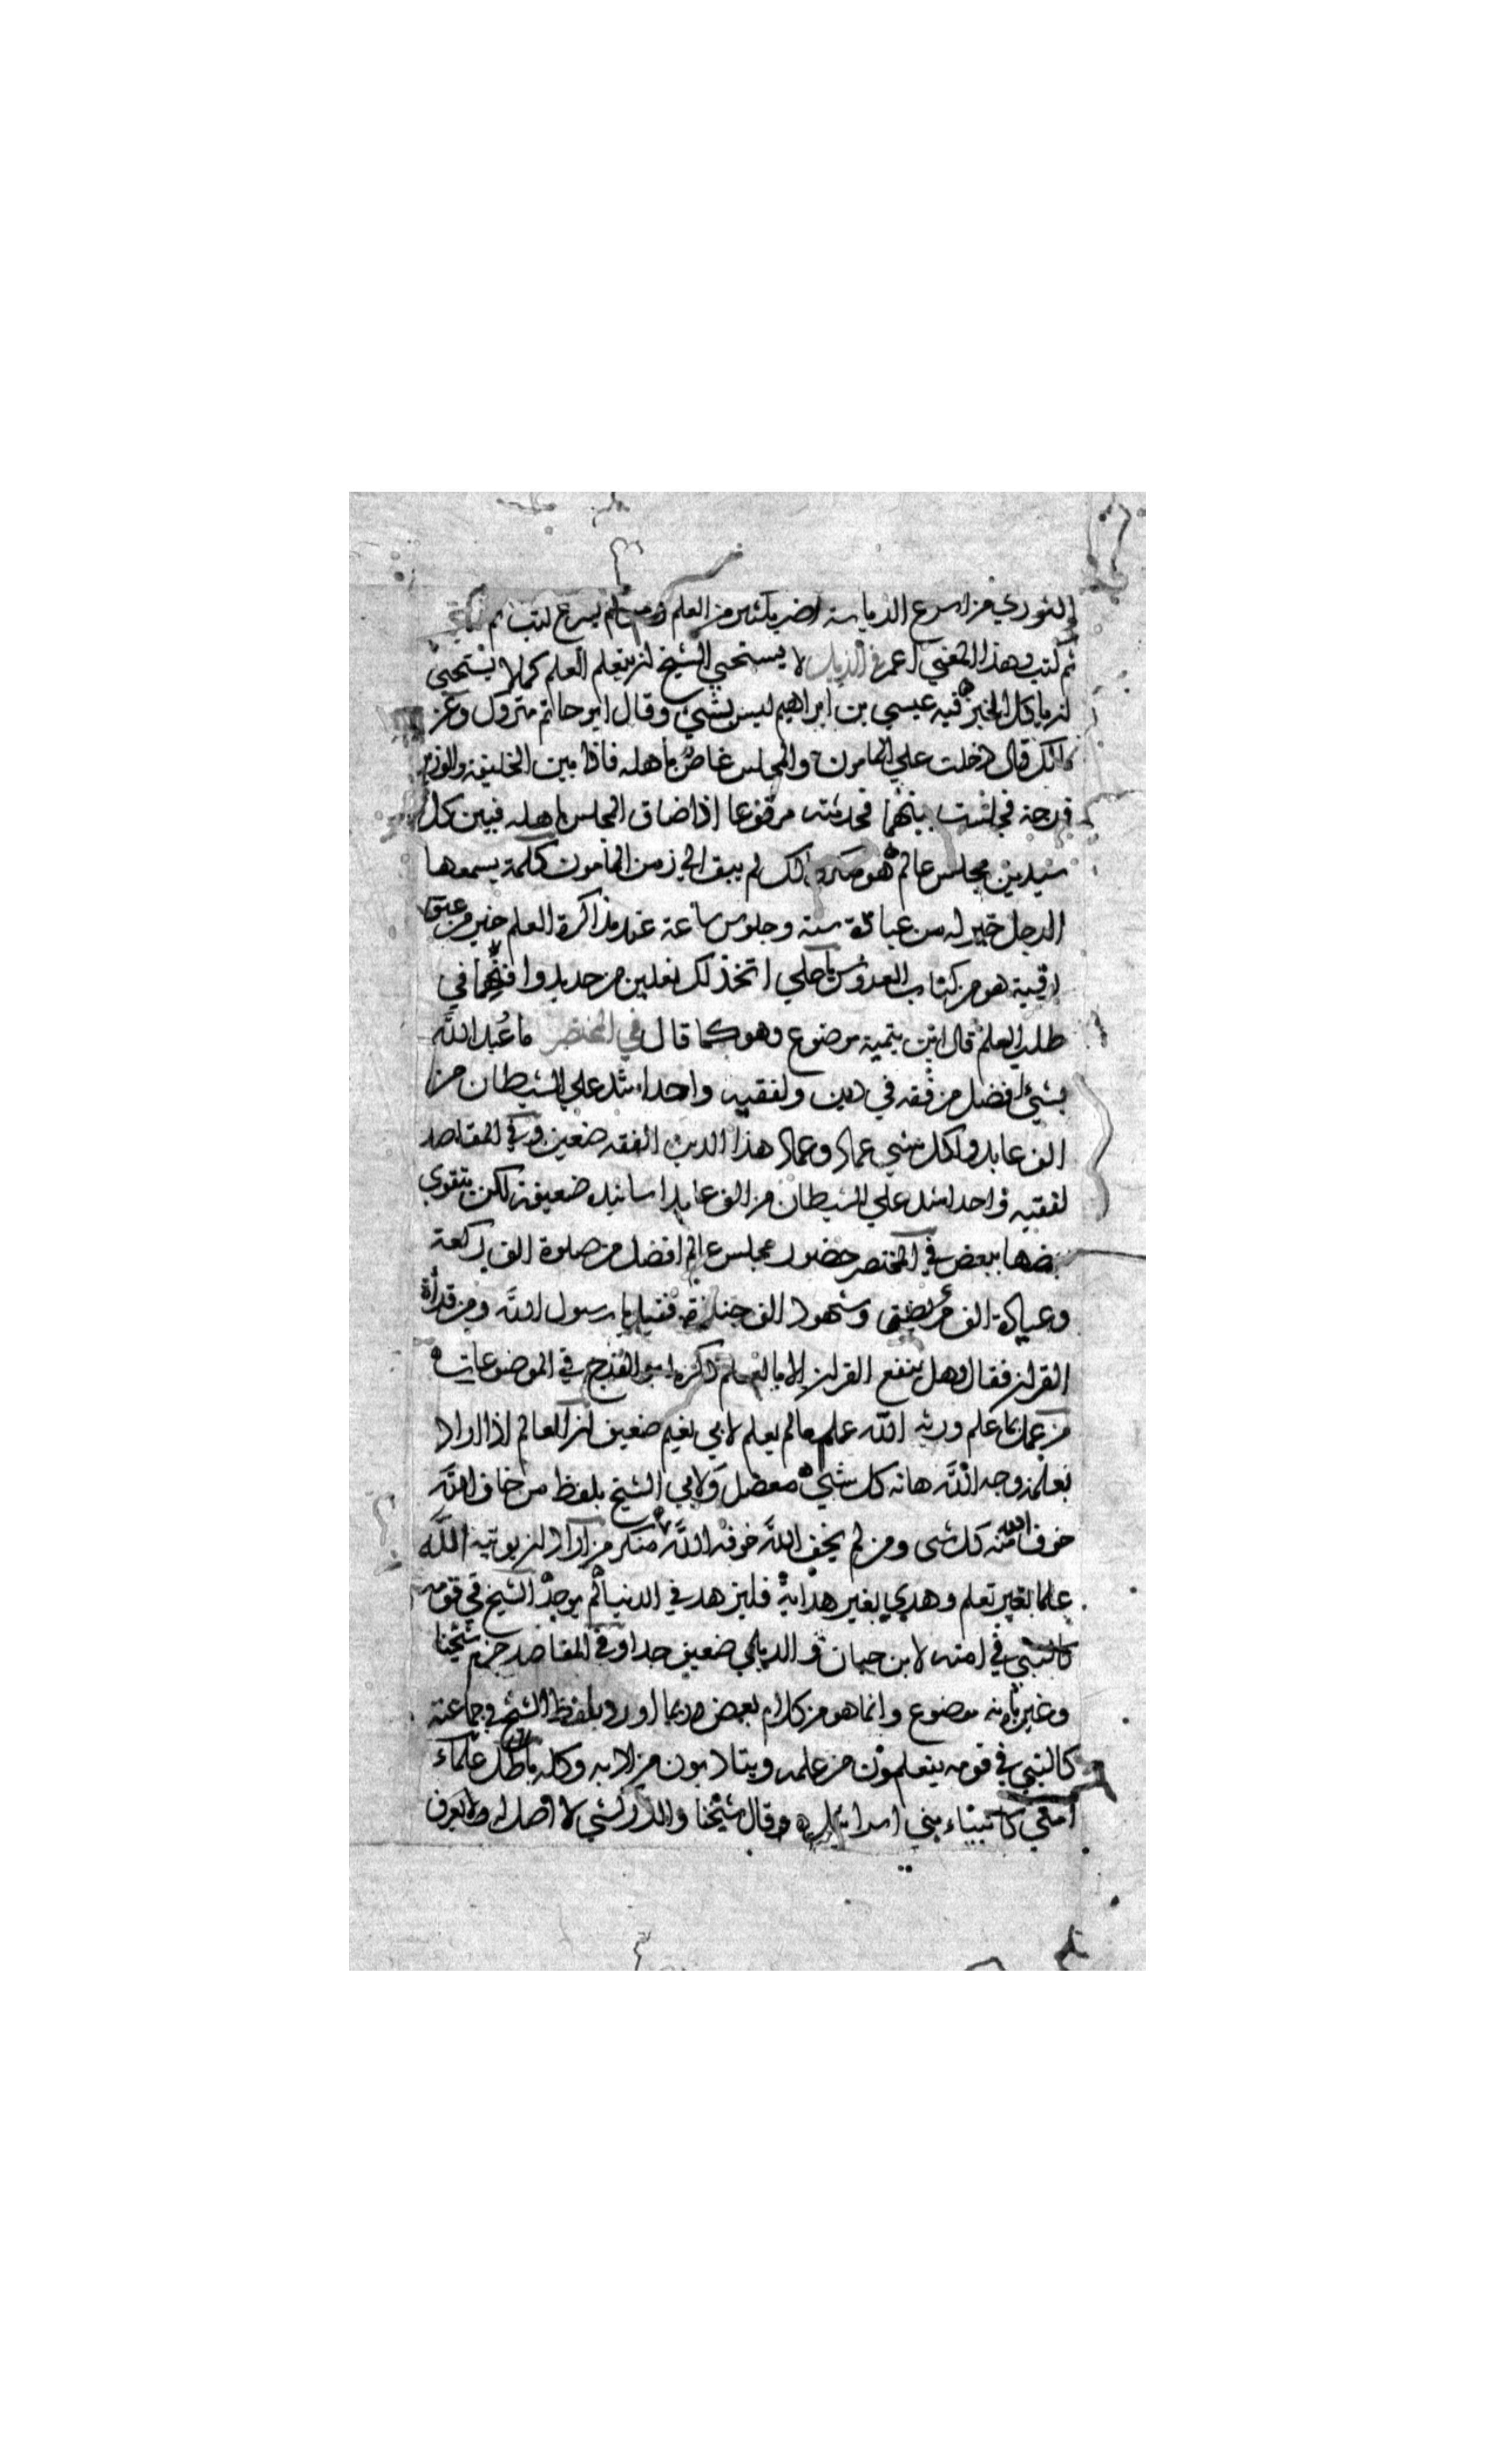 والثوري من اسرع الرياسة اضر بكثير من العلم ومن لم يسرع كتب ثم كتب
ثم كتب وهذا المعني اعم في الذيل لا يستحيي الشيخ ان يتعلم العلم كما لا يستحيي
ان ياكل الخبز فيه عيسي بن ابراهيم ليس بشيء وقال ابو حاتم متروك وعن
مالك قال دخلت علي المامون والمجلس غاص باهله فاذا بين الخليفة والوزير
فرجة فجلست بينهما فحدثته مرفوعا اذا ضاق المجلس باهله فبين كل
سيدين مجلس عالم هو منكر مالك لم يبق الي زمن المامون كلمة يسمعها
الرجل خير له من عبادة سنة وجلوس ساعة عند مذاكرة العلم خير من عتق
رقبة هو من كتاب العروس يا علي اتخذ لك نعلين من حديد وافنهما في
طلب العلم قال ابن تيمية موضوع وهو كما قال في المختصر ما عبد الله
بشيء افضل من فقه في دين ولفقيه واحد اشد علي الشيطان من
الف عابد ولكل شيء عماد وعماد هذا الدين الفقه ضعيف وفي المقاصد
لفقيه واحد اشد علي الشيطان من الف عابد اسانيده ضعيفة لكن يتقوي
بعضها ببعض في المختصر حضور مجلس عالم افضل من صلوة الف ركعة
وعيادة الف مريض وشهود الف جنازة فقيل يا رسول الله ومن قراة
القران فقال وهل ينفع القران الا بالعلم ذكره ابو الفرج في الموضوعات
من عمل بما علم ورثه الله علم ما لم يعلم لابي نعيم ضعيف ان العالم اذا اراد
بعلمه وجه الله هابه كل شيء معضل ولابي الشيخ بلفظ من خاف الله
خوف الله منه كل شي ومن لم يخف الله خوفه الله منكر من اراد ان يوتيه الله
علما بغير تعلم وهدي بغير هداية فليزهد في الدنيا لم يوجد الشيخ في قومه
كالنبي في امته لابن حبان والديلمي ضعيف جدا وفي المقاصد جزم شيخنا
وغيره بانه موضوع وانما هو من كلام بعض وربما اورد بلفظ الشيخ في جماعته
كالنبي في قومه يتعلمون من علمه ويتادبون من ادبه وكله باطل علماء
امتي كانبياء بني اسرائيل قال شيخنا والزركشي لا اصل له ولا يعرف